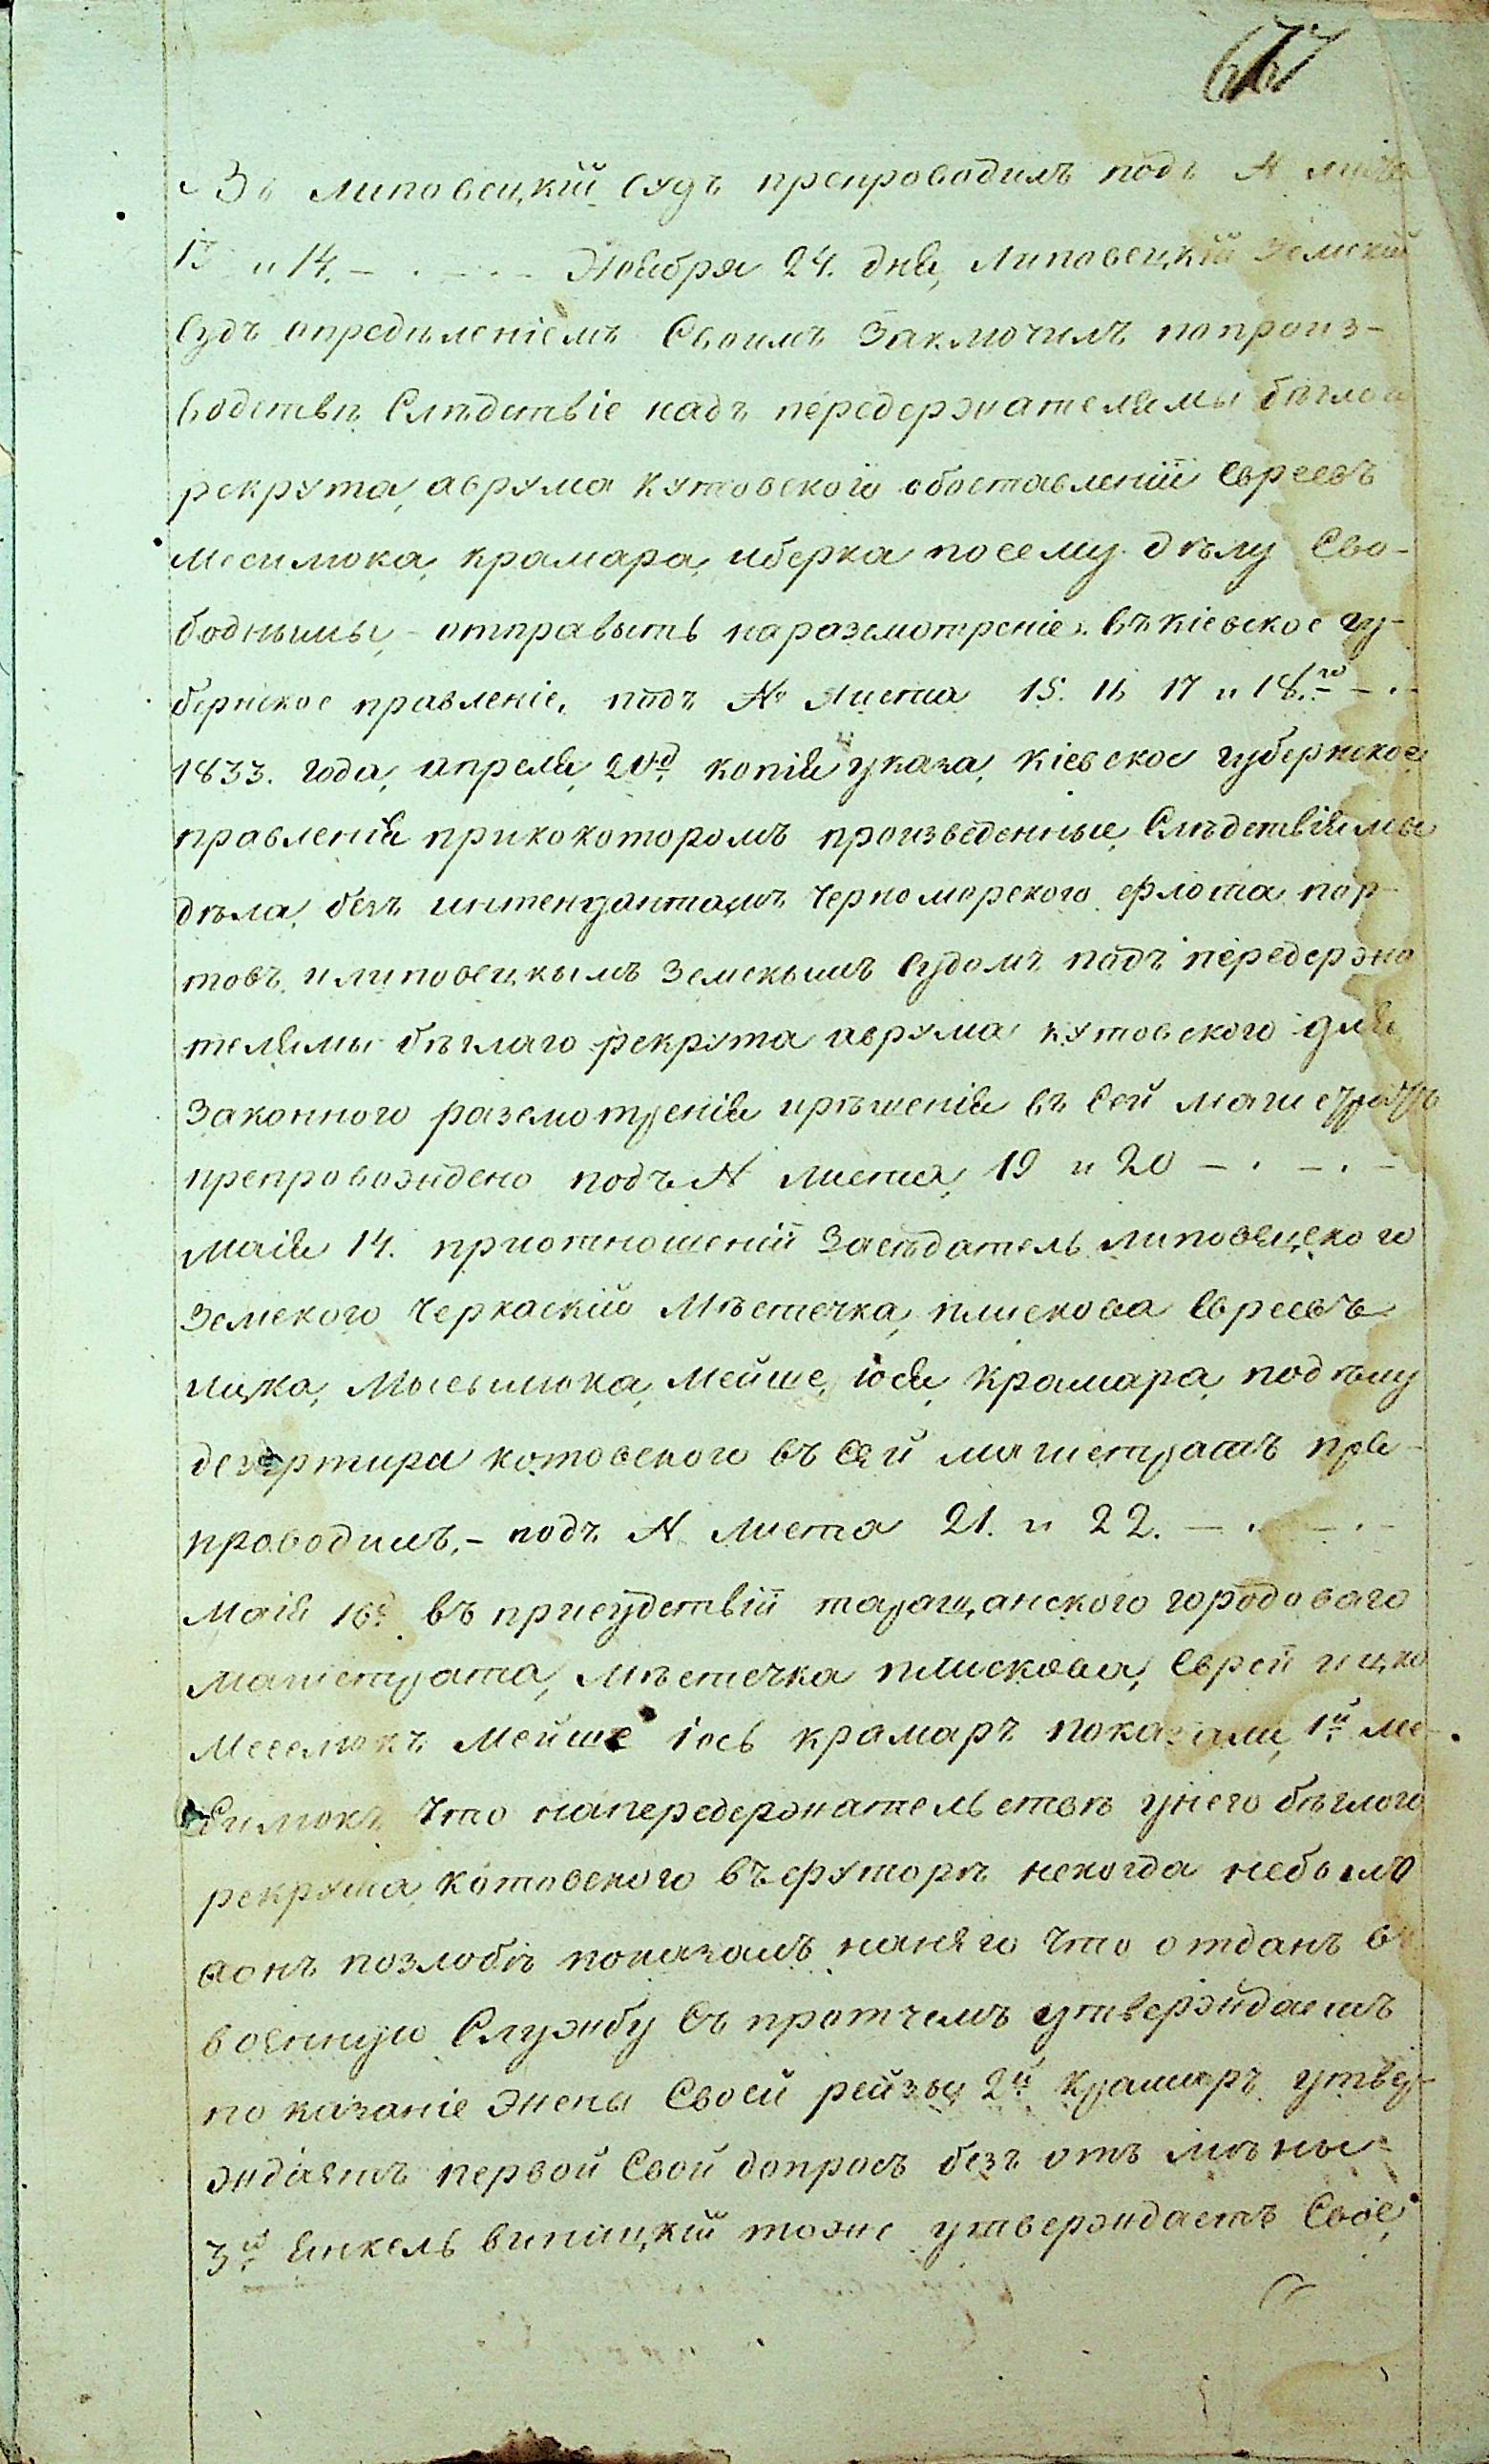 67
Въ Липовецкій Судъ препроводилъ подъ № листа
13 и 14. — . — . — Ноября 24. дня, Липовецкій Земскій
Судъ определеніемъ Своимъ Заключилъ попроиз-
водствѣ Слѣдствіе надъ передержателямы бѣглаго
рекрута, аврума кутовского обоставленіи Евреевъ
месилюка, крамара, иберка посему дѣлу Сво-
бодными, - отправыть наразсмотреніе въ Кіевское гу-
бернское правленіе, подъ № Листа 15. 16 17 и 18.го — . —
1833. года, апреля, 20д копія указа, Кіевское губернское
правленія прикокоторомъ произведенные Слѣдствіямы
дѣла, безъ интендантамъ Черноморского флота пор-
товъ, илиповецкымъ Земскымъ Судомъ надъ передержа
телямы бѣглаго рекрута аврума кутовского для
Законного разсмотренія ирѣшенія въ Сей магистратъ
препровождено подъ № листа, 19 и 20 — . — . —
Маія 14. приотношеніи Засѣдатель липовецского
Земского Черкаскій Мѣстечка, плискова Евреевъ
ицка, Мысылюка, Мейше, іося, Крамара, подѣлу
дезертира котовского въ Сей магистратъ пре-
проводилъ, - подъ № Листа 21. и 22. — . — . —
Маія 16д въ присудствіи таращанского городоваго
магистрата, мѣстечка плискова, Еврей ицко
Меселюкъ Мейше іось крамаръ показали, 1й ме-
Силюкъ Что напередержательствѣ унего бѣглого
рекрута котовского въ футорѣ некогда небыло
аонъ позлобѣ показалъ нанего Что отданъ въ
военную Службу Въ протчемъ утверждаетъ
показаніе Жены Своей рейзы 2й Крамаръ утвер-
ждаетъ первой Свой допросъ безъ отъ мѣны
3й Янкель випицкій тоже утверждаетъ Свое,